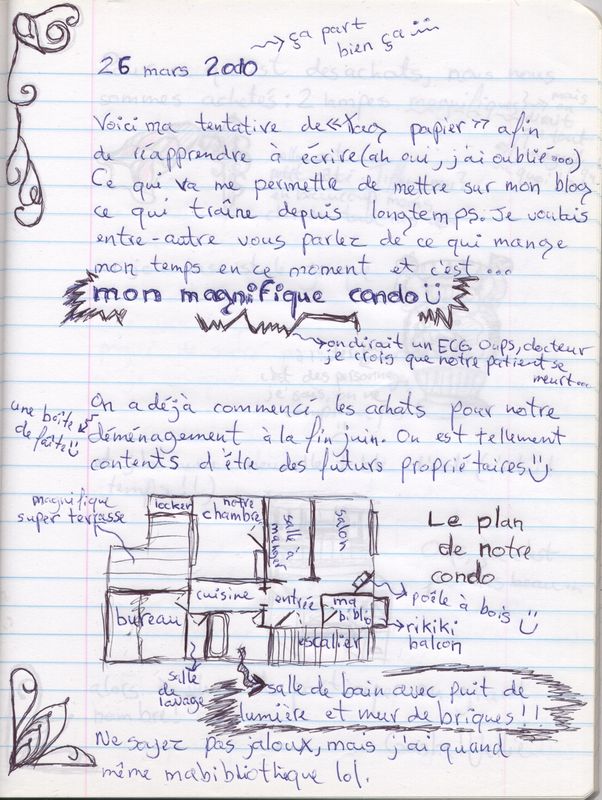 ça part
bien ça iii
26 mars 2010
Voici ma tentative de « papier » afin
de réapprendre à écrire (ah oui, j'ai oublié...)
Ce qui va me permettre de mettre sur mon blog
ce qui traîne depuis longtemps. Je voulais
entre-autre vous parlez de ce qui mange
mon temps en ce moment et c'est...
mon magnifique condo
on dirait un ECG. Oups, docteur
je crois que notre patient se
meurt...
une boîte
de faite
On a déjà commencé les achats pour notre
déménagement à la fin juin. On est tellement
contents d'être des futurs propriétaires
magnifique
super terrasse
locker
notre
chambre
salle à
manger
salon
Le plan
de notre
condo
cuisine
entrée
ma
biblio
poêle à bois
bureau
escalier
rikiki
balcon
salle
de
lavage
salle de bain avec puit de
lumière et mur de briques!!
Ne soyez pas jaloux, mais j'ai quand
même ma bibliothèque lol.